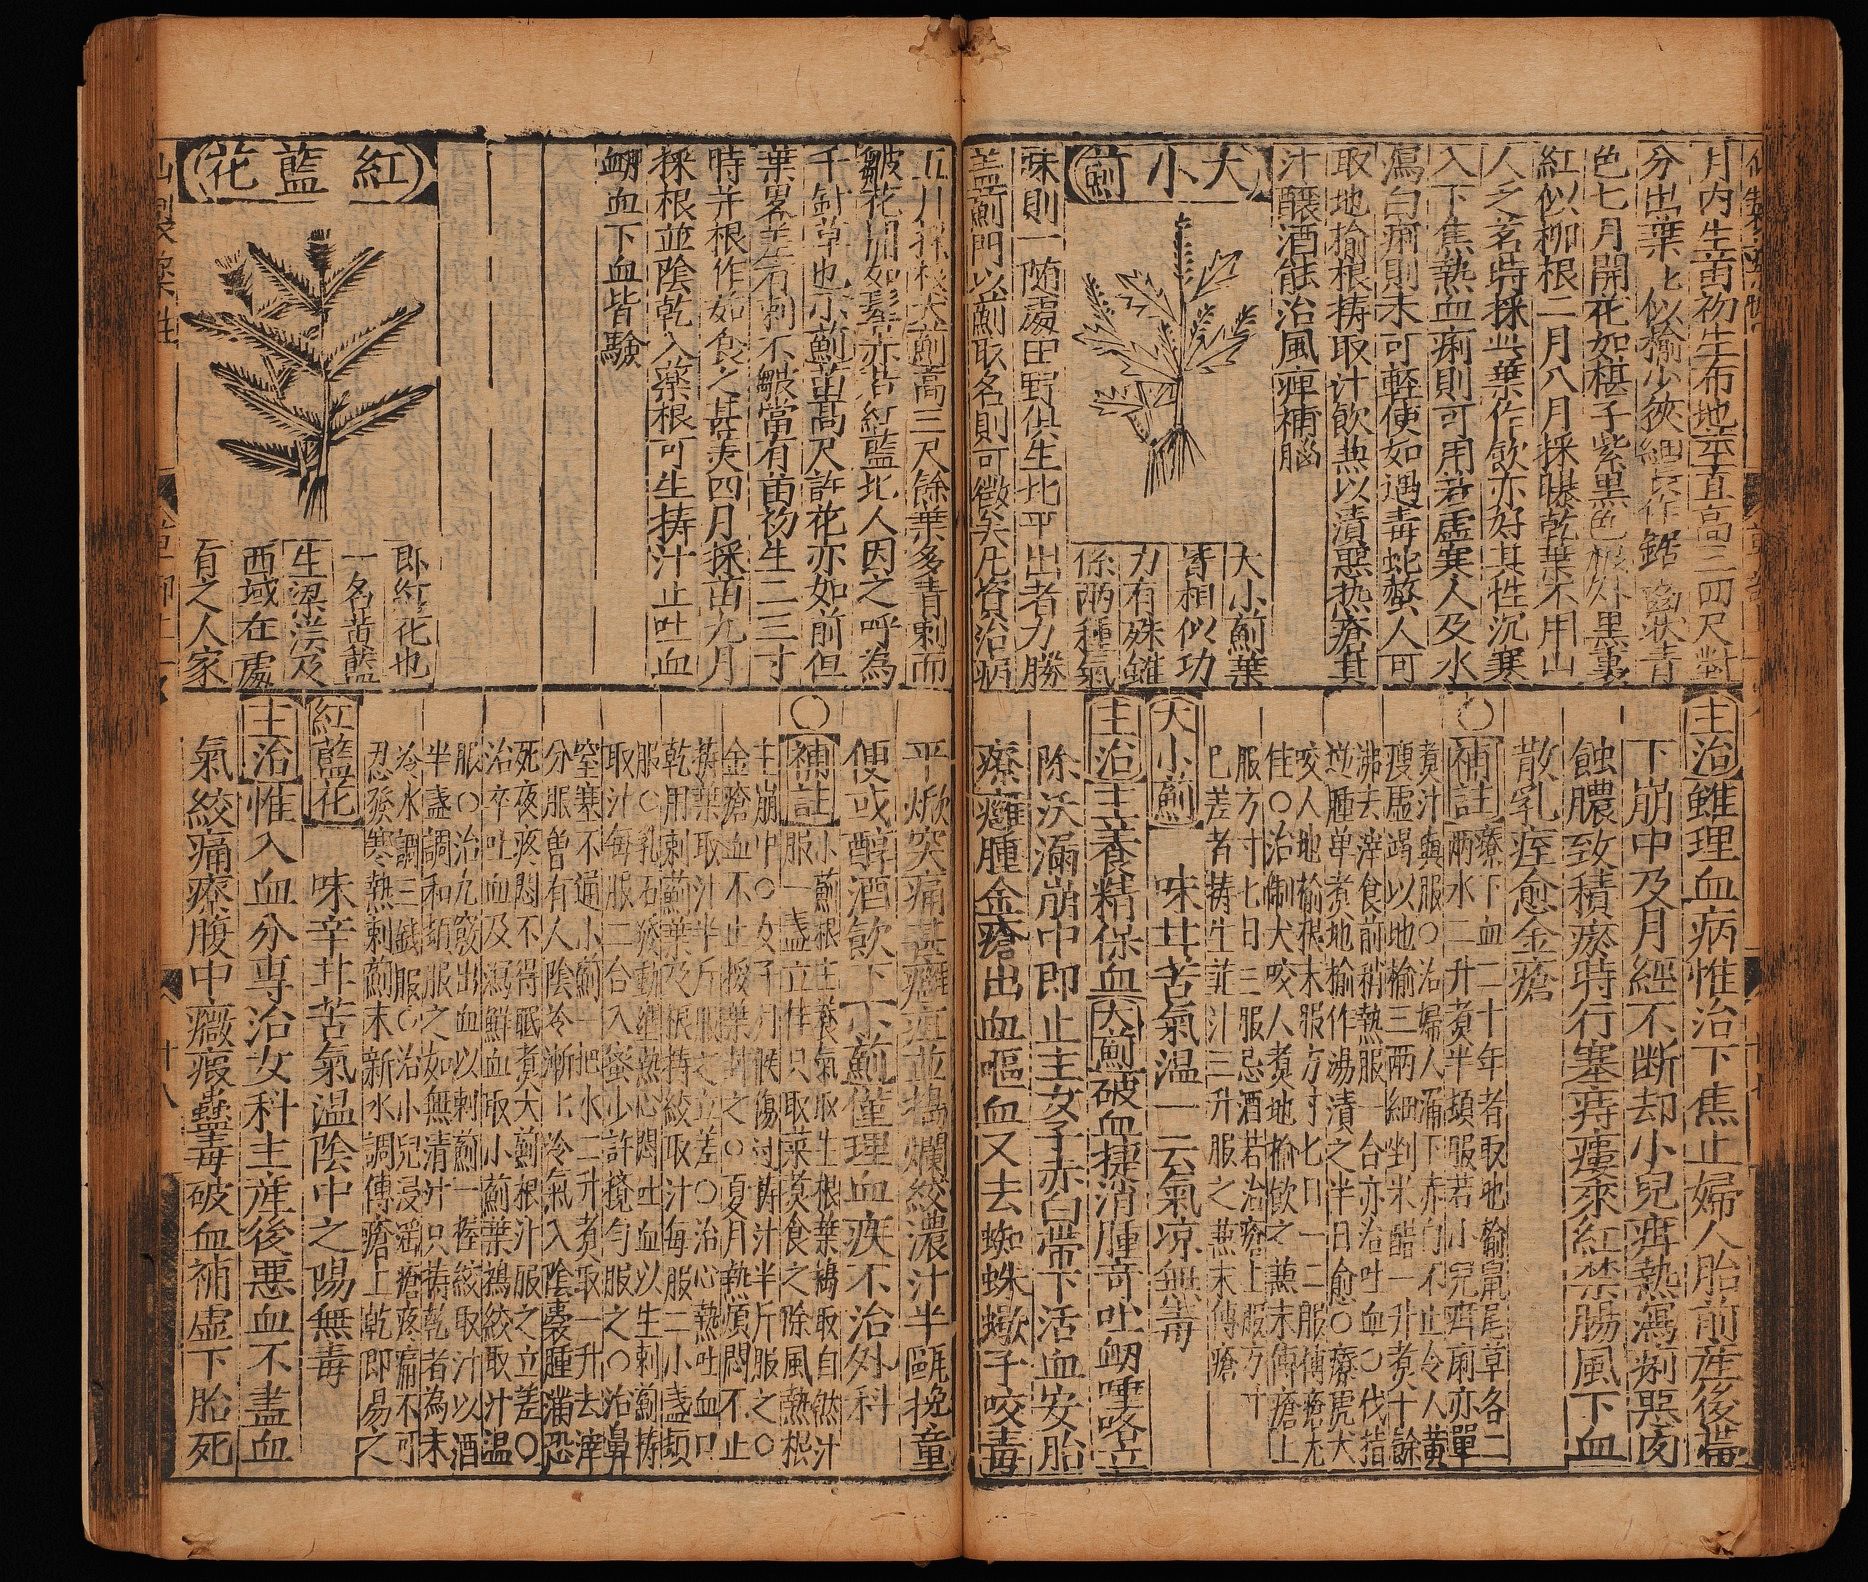 月內生苗初生布地莖直高三四尺對
分出葉〻似榆少狹細長作鋸齒狀青
色七月開花如椹子紫黑色根外黑裏
紅似柳根二月八月採曝乾葉不用山
人乏茗時採此葉作飲亦好其性沉寒
入下焦熱血痢則可用若虛寒人及水
瀉白痢則未可輕使如遇毒蛇螫人可
取地榆根擣取汁飲兼以漬熱瘡其
汁釀酒能治風痺補腦
大小薊
大小薊葉
皆相似功
力有殊雖
係兩種氣
味則一随處田野俱生北平出者力勝
蓋薊門以薊取名則可徵矣凡資治病
主治雖理血病惟治下焦止婦人胎前産後帶
下崩中及月經不断却小兒疳熱瀉痢
蝕膿致積瘀時行塞痔瘻來紅禁腸風下血
散乳痓愈金瘡
○補註療下血二十年者取地榆鼠尾草各二
兩水二升煮半頓服若小兒疳痢亦單
煮汁與服○治婦人漏下赤白不止令人黄
瘦虛渴以地榆三兩細剉米醋一升煮十餘
沸去滓食前稍熱服一合亦治吐血○伐指
逆腫单煮地榆作湯漬之半日愈○療虎犬
咬人地榆根末服方寸匕日一二服傅瘡尤
佳○治猘犬咬人煮地榆飲之兼末傅瘡上
服方寸匕日三服忌酒若治瘡上服方寸
已差者擣生韭汁三升服之兼末傅瘡
大小薊 味甘苦氣温一云氣凉無毒
主治主養精保血大薊破血捷消腫奇吐衂唾咯立
除沃漏崩中即止主女子赤白帶下活血安胎
療癰腫金瘡出血嘔血又去蜘蛛蠍子咬毒
五月採根大薊高三尺餘葉多青刺而
皺花開如髻亦若紅藍北人因之呼為
千針草也小薊苗高尺許花亦如前但
葉畧差有刺不皺當有苗初生二三寸
時并根作如食之甚美四月採苗九月
採根並陰乾入藥根可生擣汁止吐血
衂血下血皆驗
紅藍花
即紅花也
一名黄藍
生梁漢及
西域在處
有之人家
平焮突痛甚癰疽並搗爛絞濃汁半甌挽童
便或醇酒飲下小薊僅理血疾不治外科
○補註小薊根主養氣取生根葉搗取自然汁
服一盞立佳只取菜煮食之除風熱根
主崩中○女子月候傷过擣汁半斤服之○
金瘡血不止挼葉封之○夏月熱煩悶不止
擣葉取汁半斤服之立差○治心熱吐血口
乾用刺薊葉及根擣絞取汁每服二小盞頻
服○乳石發動壅熱心悶吐血以生刺薊擣
取汁每服二合入蜜少許攪勻服之○治鼻
窒塞不通小薊一把水二升煮取一升去滓
分服曽有人陰冷漸上冷氣入陰囊腫滿恐
死夜疼悶不得眠煮大薊根汁服之立差○
治卒吐血及瀉鮮血取小薊葉搗絞取汁温
服○治九竅出血以刺薊一握絞取汁以酒
半盞調和頓服之如無清汁只擣乾者為末
冷水調三錢服○治小兒浸淫瘡疼痛不可
忍發寒熱刺薊末新水調傅瘡上乾即易之
紅藍花 味辛甘苦氣温陰中之陽無毒
主治惟入血分專治女科主産後惡血不盡血
氣絞痛療腹中癥瘕蠱毒破血補虛下胎死